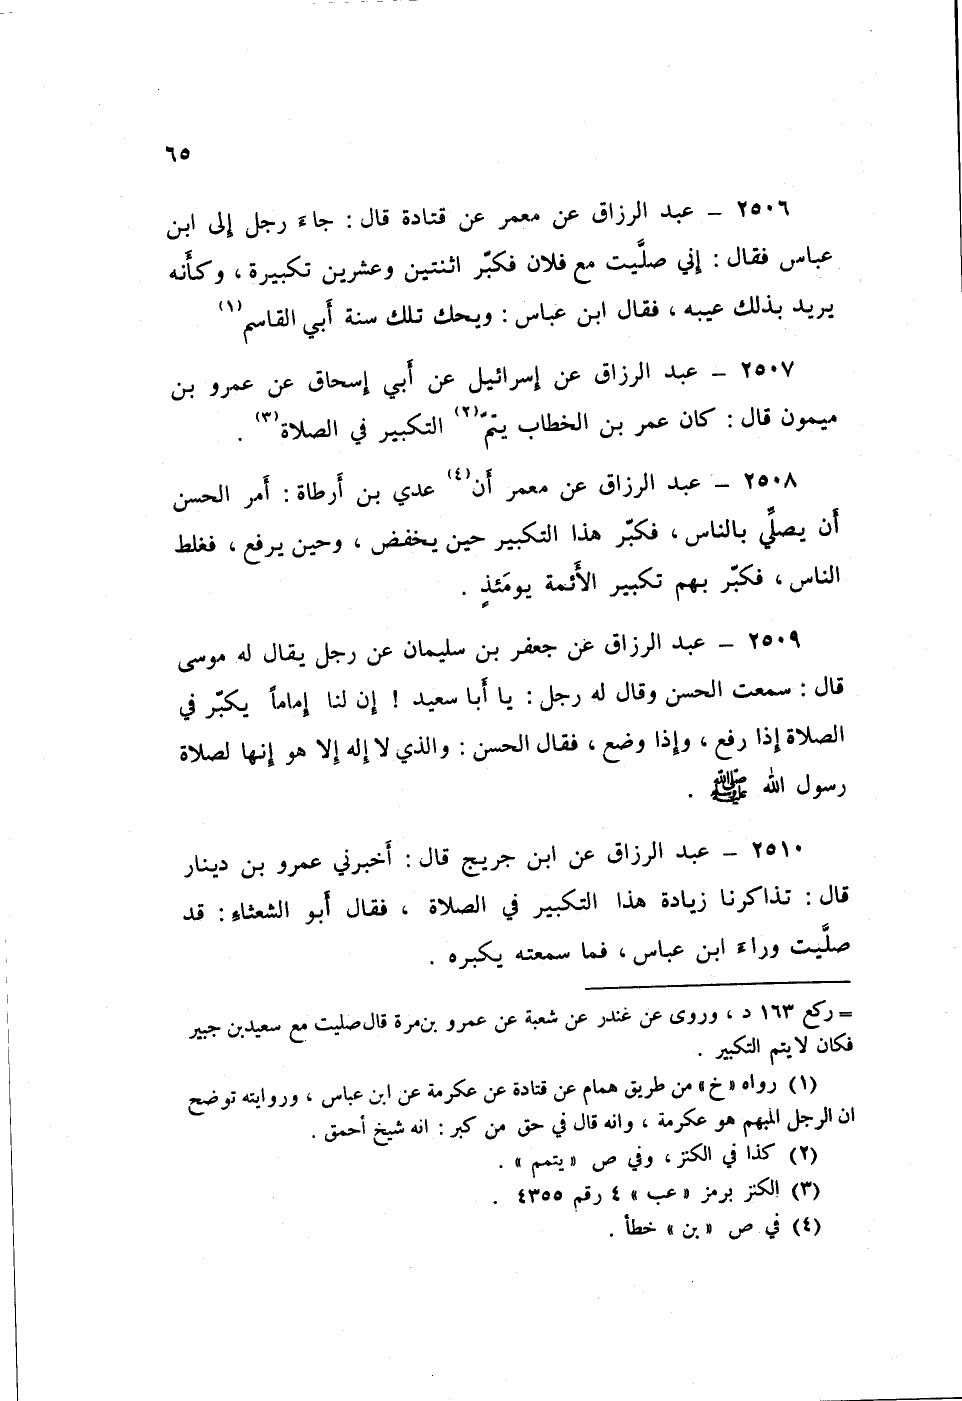 ٦٥
٢٥٠٦ – عبد الرزاق عن معمر عن قتادة قال : جاء رجل إلى ابن
عباس فقال : إني صلَّيت مع فلان فكبّر اثنتين وعشرين تكبيرة ، وكأَنه
يريد بذلك عيبه ، فقال ابن عباس : ويحك تلك سنة أَبي القاسم (١)
٢٥٠٧ – عبد الرزاق عن إسرائيل عن أَبي إسحاق عن عمرو بن
ميمون قال : كان عمر بن الخطاب يتمّ (٢) التكبير في الصلاة (٣) .
٢٥٠٨ – عبد الرزاق عن معمر أَن (٤) عدي بن أَرطاة : أَمر الحسن
أَن يصلِّي بالناس ، فكبّر هذا التكبير حين يخفض ، وحين يرفع ، فغلط
الناس ، فكبّر بهم تكبير الأَئمة يومَئذٍ .
٢٥٠٩ – عبد الرزاق عن جعفر بن سليمان عن رجل يقال له موسى
قال : سمعت الحسن وقال له رجل : يا أَبا سعيد ! إن لنا إماماً يكبّر في
الصلاة إذا رفع ، وإذا وضع ، فقال الحسن : والذي لا إله إلا هو إنها لصلاة
رسول الله ﷺ .
٢٥١٠ – عبد الرزاق عن ابن جريج قال : أَخبرني عمرو بن دينار
قال : تذاكرنا زيادة هذا التكبير في الصلاة ، فقال أَبو الشعثاء : قد
صلَّيت وراء ابن عباس ، فما سمعته يكبره .
= ركع ١٦٣ د ، وروى عن غندر عن شعبة عن عمرو بن مرة قال صليت مع سعيد بن جبير
فكان لا يتم التكبير .
(١) رواه «خ» من طريق همام عن قتادة عن عكرمة عن ابن عباس ، وروايته توضح
ان الرجل المبهم هو عكرمة ، وانه قال في حق من كبر : انه شيخ أحمق .
(٢) كذا في الكنز ، وفي ص «يتمم» .
(٣) الكنز برمز «عب» ٤ رقم ٤٣٥٥ .
(٤) في ص «بن» خطأ .